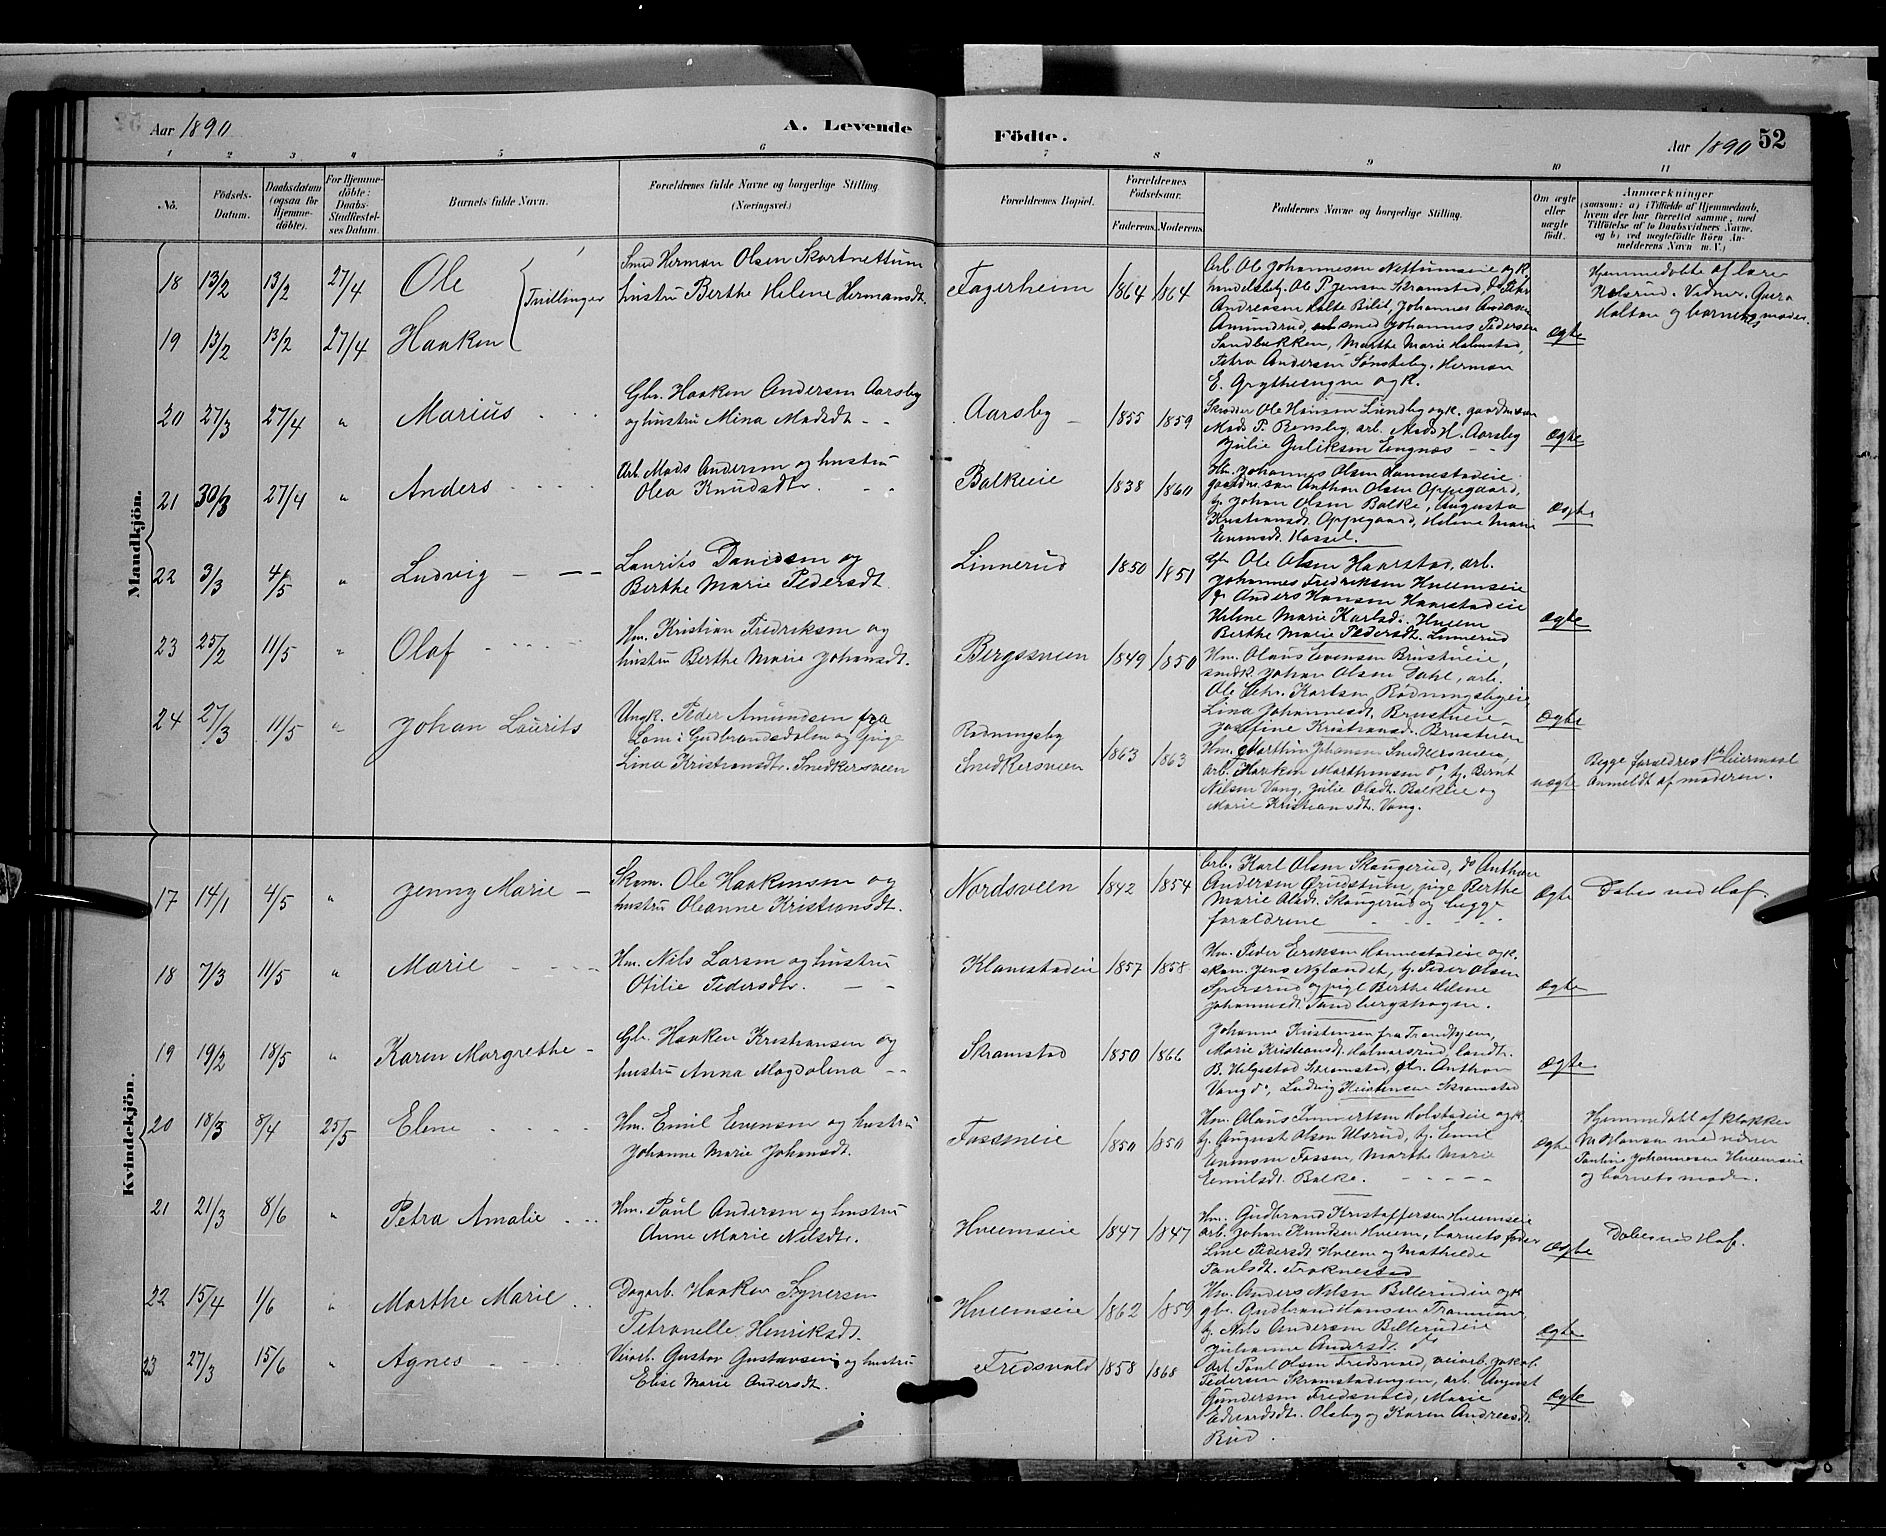 Aar 1890
A. Levende
Födte.
Aar 1890
52
1 2 3 4 5 6 7 8 9 10 11
No.
Födsels-Datum.
Daabsdatum (ogsaa for Hjemmedöbte).
For Hjemmedöbte: Daabs-Stadfæstelses Datum.
Barnets fulde Navn.
Forældrenes fulde Navne og borgerlige Stilling (Næringsvei.)
Forældrenes Bopæl.
Forældrenes Födselsaar.
Faderens. Moderens.
Faddernes Navne og borgerlige Stilling.
Om ægte eller uægte födt.
Anmærkninger
(saasom: a) i Tilfælde af Hjemmedaab, hvem der har forrettet samme, med Tilföielse af to Daabsvidners Navne, og b) ved uægtefödte Börn Anmelderens Navn m. V.)
Mandkjön.
18 13/2 13/2 27/4 Ole
Tvillinger
Smed Herman Olsen Skartnettum
hustru Berthe Helene Hermansdt.
Fagerheim 1864 1864
Arb. Ole Johannesen Nettumseie og K.
handelsby. Ole P. Jensen Skramstad, do Petr
Andreasen Kalte Bilit, Johannes Andersen
Amundrud, smed Johannes Pedersen
Sandbakken, Marthe Marie Helmstad,
Petra Andersen Sønsteby, Herman
E. Grythengen og k.
Hjemmedøbte af lærer
Helsrud. Vidner. Guro
Holton og barnets moder.
19 13/2 13/2 27/4 Haaken
ægte
20 27/3 27/4 " Marius
Gbr. Haaken Andersen Aarsby
og hustru Mina Madsdt.
Aarsby 1855 1859
Skrædder Ole Hansen Lundby og k. gaardmann
Mads P. Rensby, arb. Mads H. Aarsby
Julie Guliksen Engnæs
ægte
21 30/3 27/4 " Anders
Arb. Mads Andersen og hustru
Olea Knudsdtr.
Balkeie 1838 1860
Hm. Johannes Olsen Lannestadeie
gaardm.søn Anthon Olsen Oppegaard,
tj. Johan Olsen Balke, Augusta
Kristiansdt. Oppegaard, Helene Marie
Evensdt. Hassel.
ægte
22 3/3 4/5 " Ludvig
Laurits Davidsen og
Berthe Marie Pedersdt.
Linnerud 1850 1851
Gbr. Ole Olsen Haarstad, arb.
Johannes Fredriksen Hveemseie
do Anders Hansen Haarstadeie
Helene Marie Karlsdt. Hveem
Berthe Marie Pedersdt. Linnerud
ægte
23 25/2 11/5 " Olaf
Hm. Kristian Fredriksen og
hustru Berthe Marie Johansdt.
Bergsveen 1849 1850
Hm. Olaus Evensen Brustueie,
snedk. Johan Olsen Dahl, arb.
Ole Chr. Karlsen Rødningsbyeie
Lina Johannesdt. Brustueie
Josefine Kristiansdt. Brustueie
ægte
24 27/3 11/5 " Johan Laurits
Ungk. Peder Amundsen fra
Lom i Gudbrandsdalen og Pige
Lina Kristiansdt. Snedkersveen
Rødningsby
Snedkersveen
1863 1863
Hm. Marthin Johansen Snedkersveen,
arb. Haaken Marthinsen do, tj. Bernt
Nilsen Vang, Julie Olsdt. Balkeie og
Marie Kristiansdt. Vang.
uægte
Begge forældres 1ste leiermaal
Anmeldt af moderen.
Kvindekjön.
17 14/1 4/5 " Jenny Marie
Skom. Ole Haakensen og
hustru Oleanne Kristiansdt.
Nordsveen 1842 1854
Arb. Karl Olsen Skaugerud, do Anthon
Andersen Grudstuen, pige Berthe
Marie Olsdt. Skaugerud og begge
forældrene
ægte
Døbes ved Hof.
18 7/3 11/5 " Marie
Hm. Nils Larsen og hustru
Otilie Pedersdtr.
Klamestadeie 1857 1858
Hm. Peder Eriksen Hannestadeie og k.
skom. Jens Nylandet, tj. Peder Olsen
Spersrud og pige Berthe Helene
Johannesdt. Sandbergshagen.
ægte
19 19/2 18/5 " Karen Margrethe
Gbr. Haaken Kristiansen og
hustru Anna Magdalena
Skramstad 1850 1866
Johanne Kristensen fra Trondhjem,
Marie Kristiansdt. Halvorsrud, landh.
B. Helgestad Skramstad, gbr. Anthon
Vang do, Ludvig Kristensen Skramstad
ægte
20 18/3 8/4 25/5 Elene
Hm. Emil Evensen og hustru
Johanne Marie Johansdt.
Fossmeie 1850 1850
Hm. Olaus Simmersen Holstadeie og k.
tj. August Olsen Ulsrud, tj. Emil
Evensen Fossen, Marthe Marie
Emilsdt. Balke.
ægte
Hjemmedøbt af klokker
Hansen med vidner
Pauline Johannesen Hveemseie
og barnets moder.
21 21/3 8/6 " Petra Amalie
Hm. Paul Andersen og hustru
Anne Marie Nilsdtr.
Hveemseie 1847 1847
Hm. Gudbrand Kristoffersen Hveemseie
arb. Johan Knutsen Hveem, barnets fader
Line Pedersdt Hveem og Mathilde
Paulsdt. Froknestad
ægte
Døbes ved Hof.
22 15/4 1/6 " Marthe Marie
Dagarb. Haaken Syversen
Petronelle Henriksdt.
Hveemseie 1862 1859
Hm. Anders Nilsen Billerudeie og k
gbr. Gudbrand Hansen Framnæs,
tj. Nils Andersen Billerudeie
Julianne Andersdt. do
ægte
23 27/3 15/6 " Agnes
Veiarb. Gustav Gustavsen og hustru
Elise Marie Andersdt.
Fredsvold 1858 1868
Arb. Paul Olsen Fredsvold, veiarb. Jakob
Pedersen Skramstadengen, arb. August
Gundersen Fredsvold, Marie
Edvardsdt. Olsby og Karen Andreasdt.
Rud.
ægte